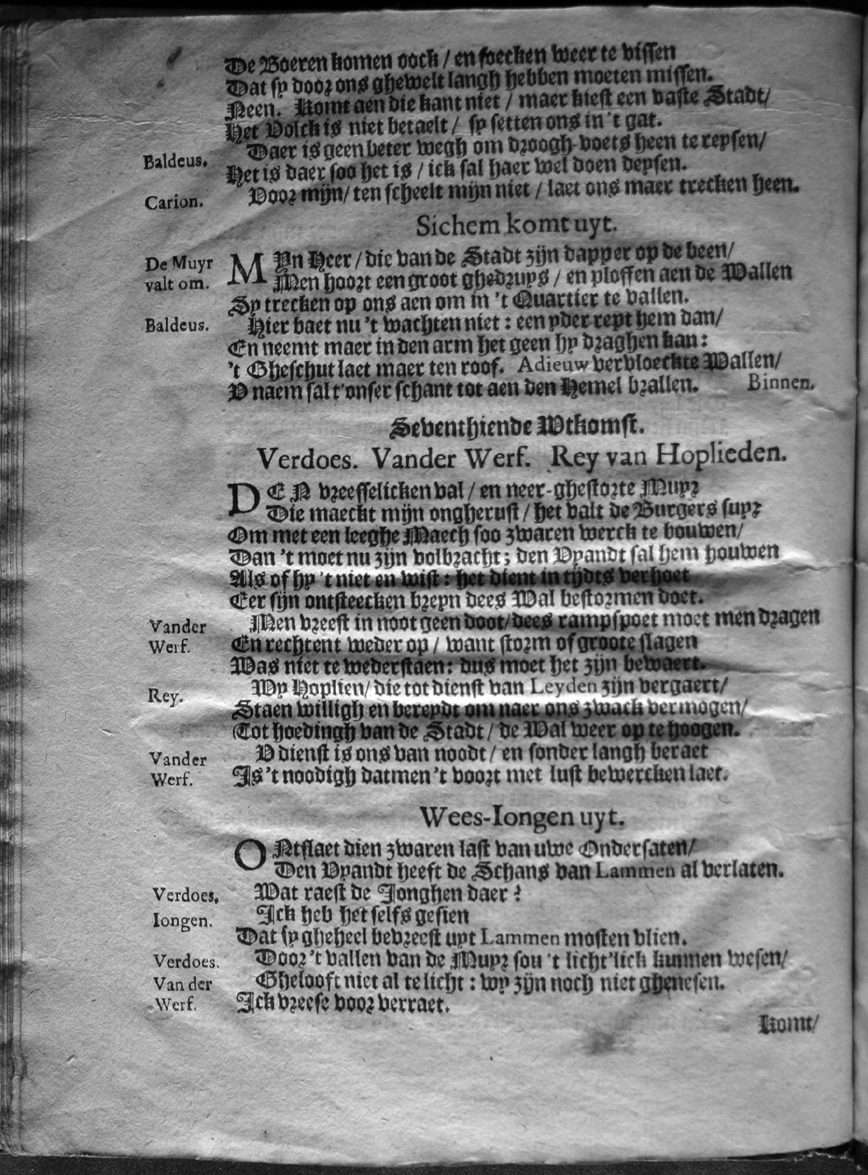 De Boeren komen oock / en soecken weer te vissen
Dat sy door ons ghewelt langh hebben moeten missen.
Neen. Komt aen die kant niet / maer kiest een vaste Stadt/
Het Volck is niet betaelt / sy setten ons in 't gat.
Baldeus. Daer is geen beter wegh om droogh-voets heen te reysen/
Het is daer soo het is / ick sal haer wel doen deysen.
Carion. Voor mijn / ten scheelt mijn niet / laet ons maer trecken heen.
Sichem komt uyt.
De Muyr valt om. MYn Heer / die van de Stadt zijn dapper op de been/
Men hoort een groot ghedruys / en ploffen aen de Wallen
Sy trecken op ons aen om in 't Quartier te vallen.
Baldeus. Hier baet nu 't wachten niet : een yder rept hem dan/
En neemt maer in den arm het geen hy draghen kan:
't Gheschut laet maer ten roof. Adieuw vervloeckte Wallen/
V naem sal t'onser schant tot aen den Hemel brallen. Binnen.
Seventhiende Wtkomst.
Verdoes. Vander Werf. Rey van Hoplieden.
DEN vreesselicken val / en neer-ghestorte Muyr
Die maeckt mijn ongherust / het valt de Burgers suyr
Om met een leeghe Maech soo zwaren werck te bouwen/
Dan 't moet nu zijn volbracht; den Vyandt sal hem houwen
Als of hy 't niet en wist : het dient in tijdts verhoet
Eer sijn ontsteecken breyn dees Wal bestormen doet.
Vander Werf. Men vreest in noot geen doot/ dees rampspoet moet men dragen
En rechtent weder op / want storm of groote slagen
Was niet te wederstaen: dus moet het zijn bewaert.
Rey. Wy Hoplien / die tot dienst van Leyden zijn vergaert/
Staen willigh en bereydt om naer ons zwack vermogen/
Tot hoedingh van de Stadt / de Wal weer op te hoogen.
Vander Werf. V dienst is ons van noodt / en sonder langh beraet
Is 't noodigh datmen 't voort met lust bewercken laet.
Wees-Iongen uyt.
ONtslaet dien zwaren last van uwe Ondersaten/
Den Vyandt heeft de Schans van Lammen al verlaten.
Verdoes. Wat raest de Jonghen daer ?
Iongen. Ick heb het selfs gesien
Dat sy gheheel bevreest uyt Lammen mosten vlien.
Verdoes. Door 't vallen van de Muyr sou 't licht'lick kunnen wesen/
Van der Werf. Ghelooft niet al te licht : wy zijn noch niet ghenesen.
Ick vreese voor verraet.
Komt/